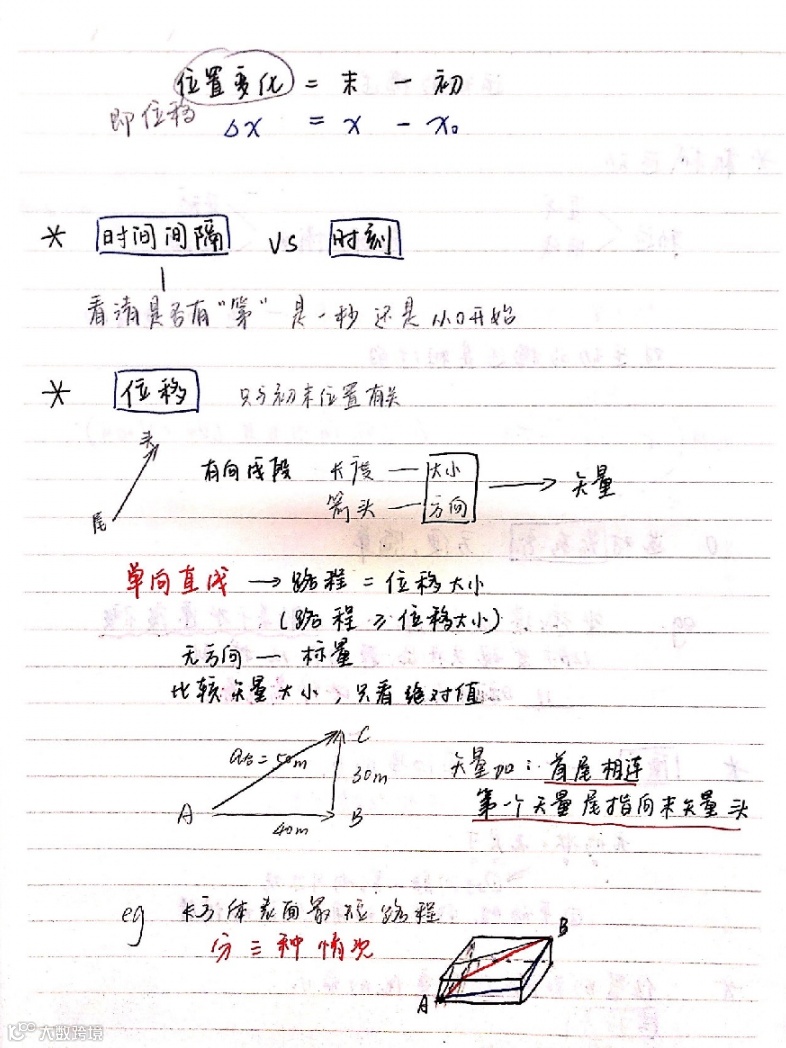 位置变化 = 末 - 初
即位移 Δx = x - x₀
* 时间间隔 VS 时刻
看清是否有"第" 是一秒还是从0开始
* 位移 只与初末位置有关
头
有向线段 长度 — 大小
→ 矢量
箭头 — 方向
尾
单向直线 → 路程 = 位移大小
(路程 ≥ 位移大小)
无方向 — 标量
比较矢量大小,只看绝对值
C
a合=50m
30m
矢量加: 首尾相连
A
B
第一个矢量尾指向末矢量头
40m
eg 长方体表面最短路程
B
分三种情况
A
大数跨境